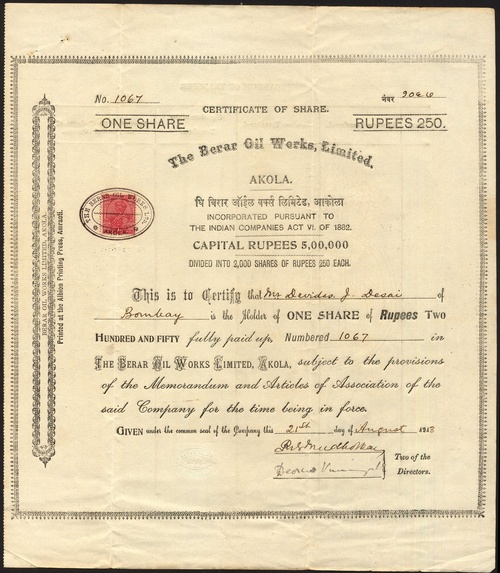 No. 1067
नंबर
CERTIFICATE OF SHARE.
ONE SHARE
RUPEES 250.
The Berar Oil Works, Limited.
AKOLA.
धि बिरार ऑईल वर्क्स लिमिटेड, आकोला
INCORPORATED PURSUANT TO
THE INDIAN COMPANIES ACT VI. OF 1882.
CAPITAL RUPEES 5,00,000
DIVIDED INTO 2,000 SHARES OF RUPEES 250 EACH.
THE BERAR OIL WORKS LD.
AKOLA
BERAR OIL WORKS LIMITED, AKOLA.
Printed at the Albion Printing Press, Amraoti.
This is to Certify that Mr Devidas J. Desai of
Bombay is the Holder of ONE SHARE of Rupees Two
Hundred and Fifty fully paid up, Numbered 1067 in
The Berar Oil Works Limited, Akola, subject to the provisions
of the Memorandum and Articles of Association of the
said Company for the time being in force.
Given under the common seal of the Company this 21st day of August 1913
Two of the
Directors.